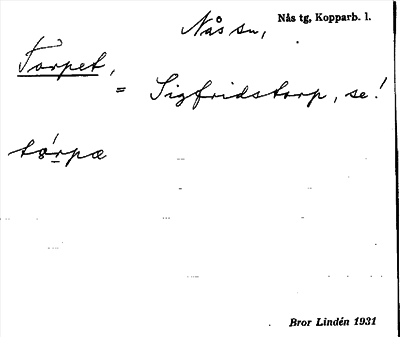 Nås sn, Nås tg, Kopparb. l.
Torpet,
= Sigfridstorp, se!
tórpæ
Bror Lindén 1931